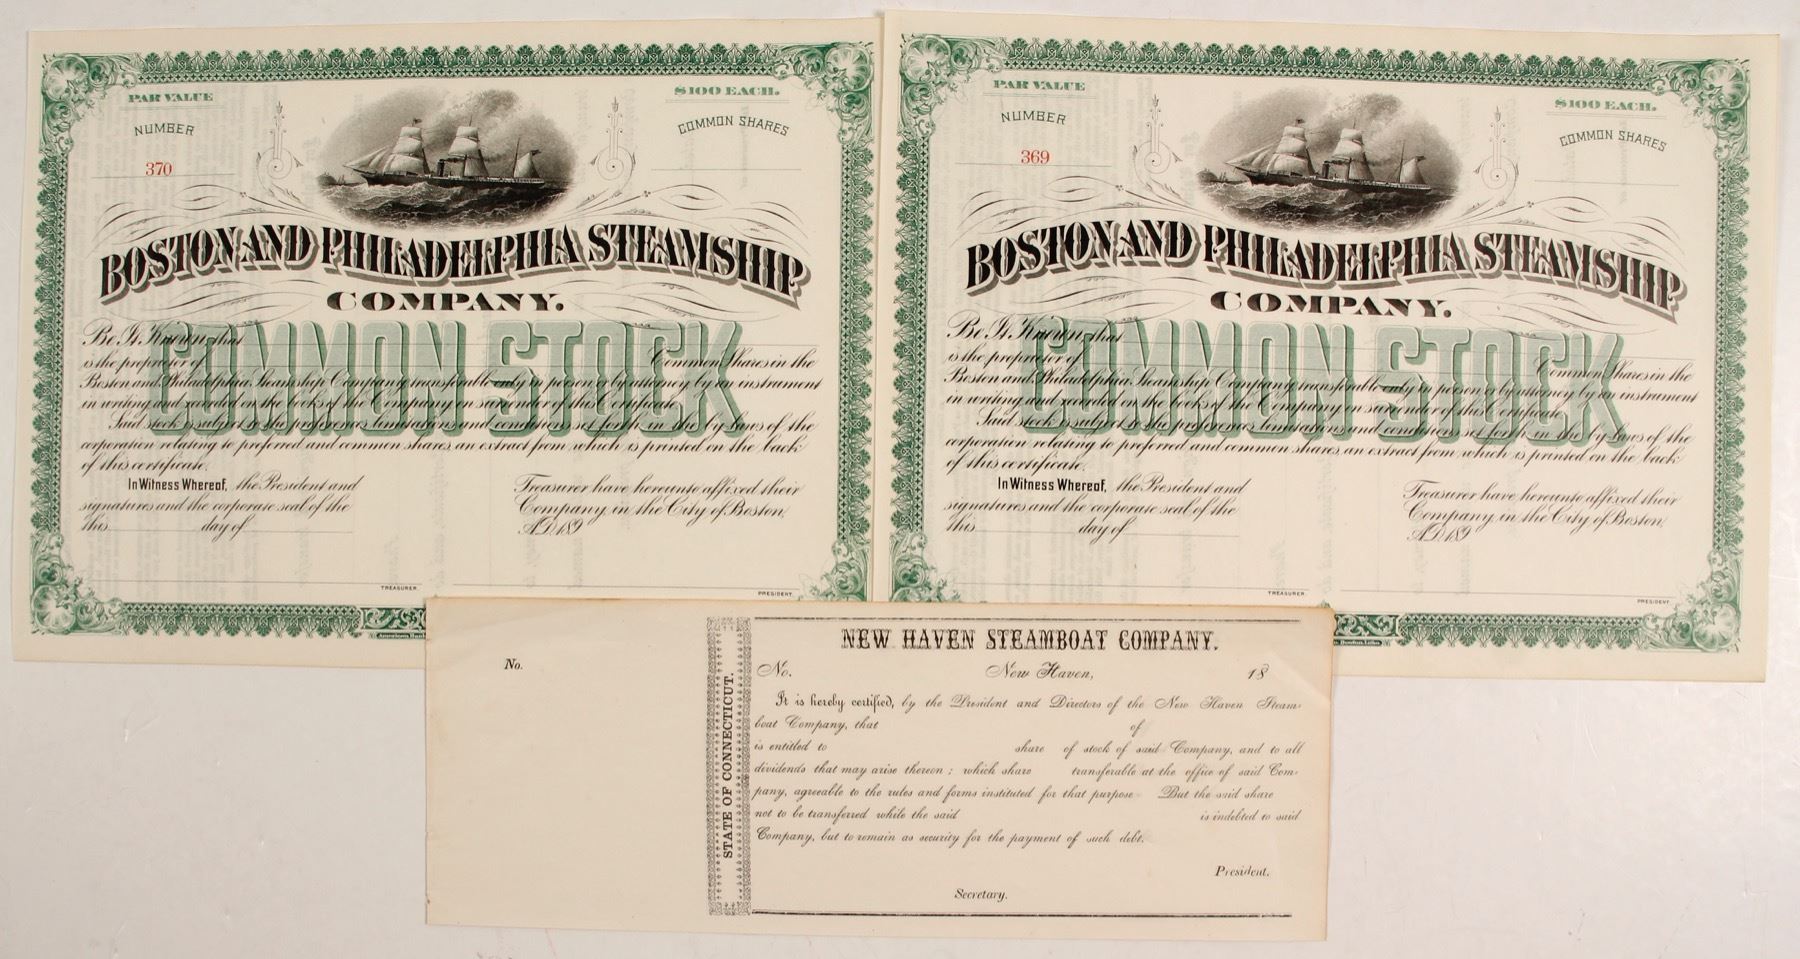 PAR VALUE
$100 EACH.
NUMBER
COMMON SHARES
370
BOSTON AND PHILADELPHIA STEAMSHIP
COMPANY.
COMMON STOCK
Be It Known that
is the proprietor of Common Shares in the
Boston and Philadelphia Steamship Company transferable only in person or by attorney by an instrument
in writing and recorded on the books of the Company on surrender of this Certificate.
Said stock is subject to the preferences limitations and conditions set forth in the by-laws of the
corporation relating to preferred and common shares, an extract from which is printed on the back
of this certificate.
In Witness Whereof, the President and Treasurer have hereunto affixed their
signatures and the corporate seal of the Company, in the City of Boston,
this day of A.D. 189
TREASURER.
PRESIDENT.
American Bank
PAR VALUE
$100 EACH.
NUMBER
COMMON SHARES
369
BOSTON AND PHILADELPHIA STEAMSHIP
COMPANY.
COMMON STOCK
Be It Known that
is the proprietor of Common Shares in the
Boston and Philadelphia Steamship Company transferable only in person or by attorney by an instrument
in writing and recorded on the books of the Company on surrender of this Certificate.
Said stock is subject to the preferences limitations and conditions set forth in the by-laws of the
corporation relating to preferred and common shares, an extract from which is printed on the back
of this certificate.
In Witness Whereof, the President and Treasurer have hereunto affixed their
signatures and the corporate seal of the Company, in the City of Boston,
this day of A.D. 189
TREASURER.
PRESIDENT.
No.
STATE OF CONNECTICUT.
NEW HAVEN STEAMBOAT COMPANY.
No. New Haven, 18
It is hereby certified, by the President and Directors of the New Haven Steam-
boat Company, that of
is entitled to share of stock of said Company, and to all
dividends that may arise thereon; which share transferable at the office of said Com-
pany, agreeable to the rules and forms instituted for that purpose But the said share
not to be transferred while the said is indebted to said
Company, but to remain as security for the payment of such debt.
President.
Secretary.